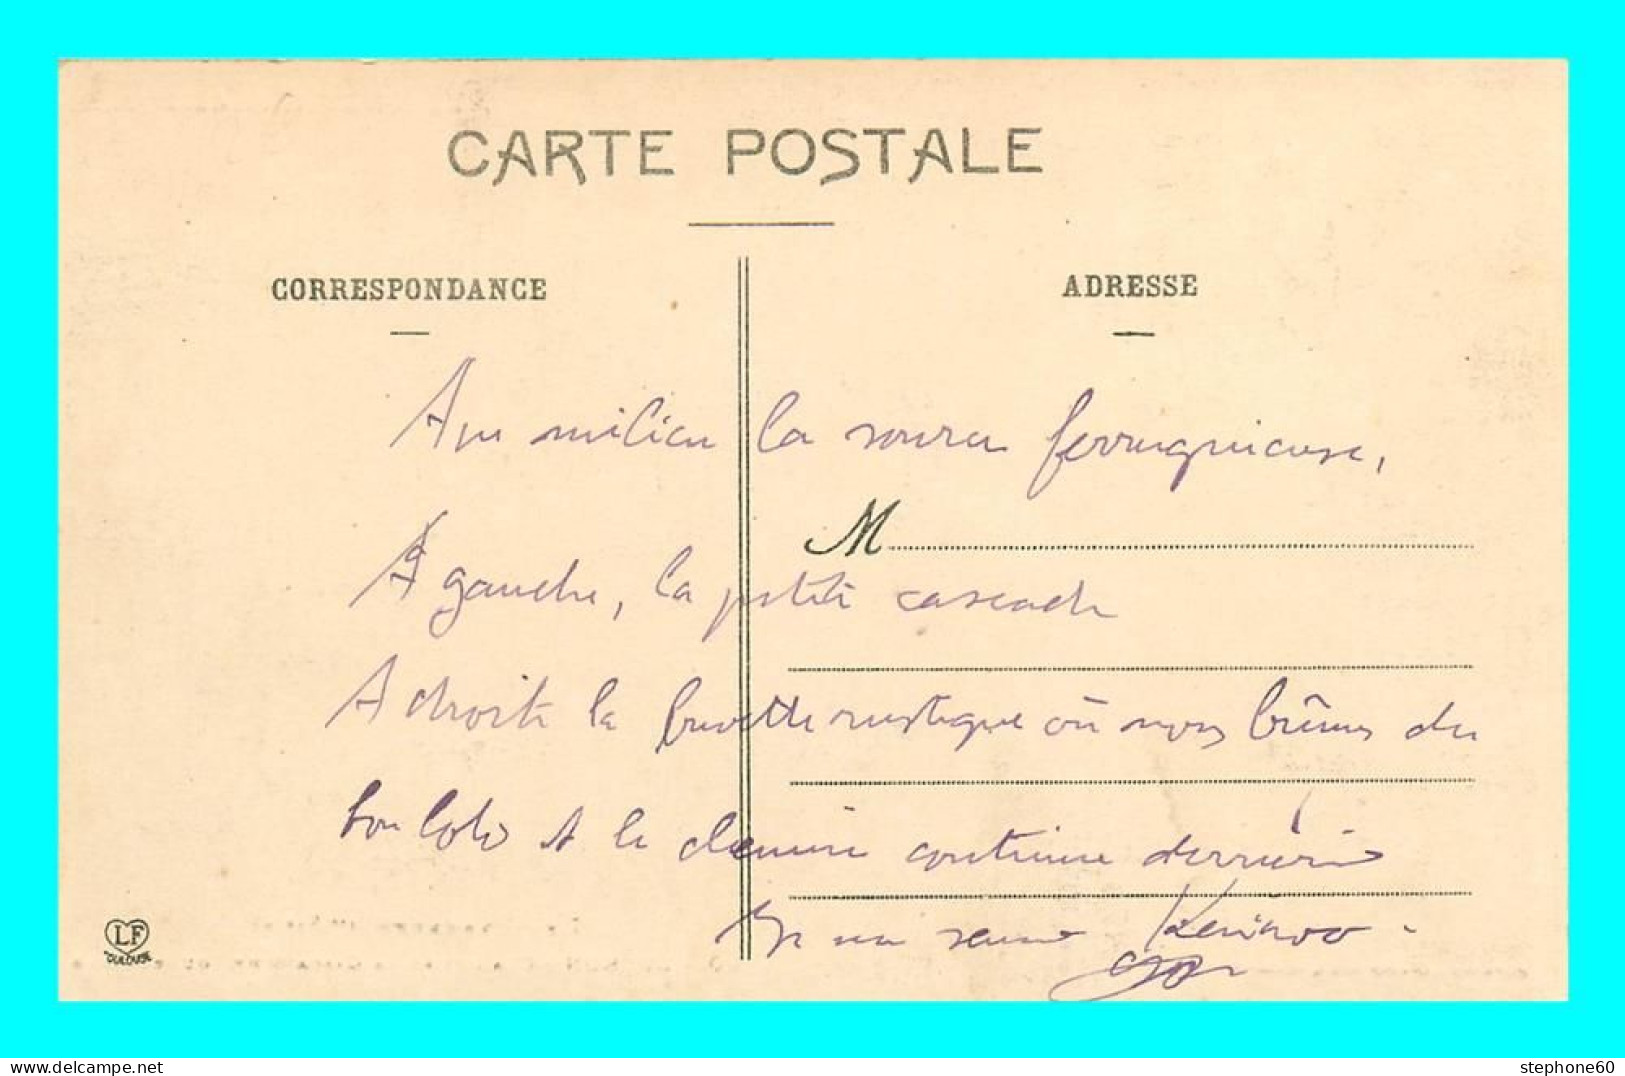 CARTE POSTALE
CORRESPONDANCE
ADRESSE
Au milieu la source ferrugineuse,
A gauche, la petite cascade
M
A droite la buvette rustique où nous bûmes du
bon lolo et le chemin continue derrière
LF
TOULOUSE
delcampe.net
stephone60